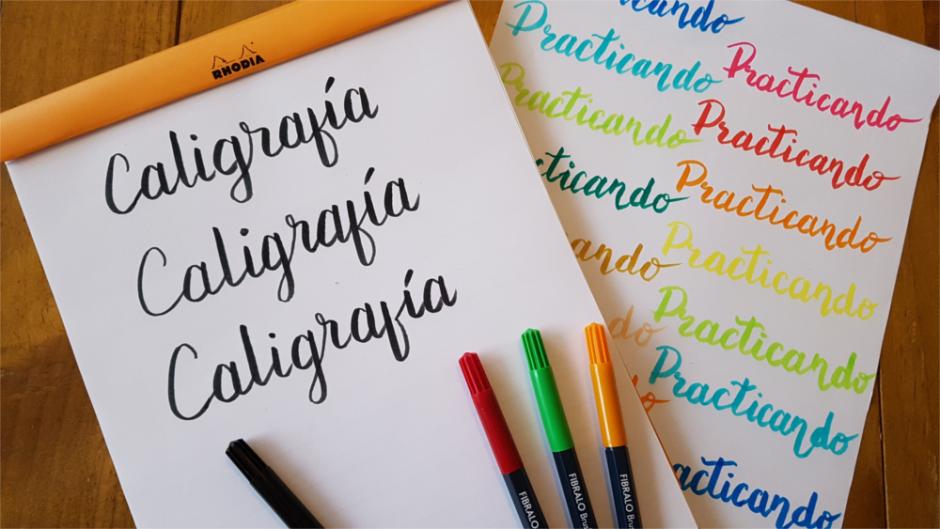 RHODIA
Caligrafía
Caligrafía
Caligrafía
Practicando
Practicando
Practicando
Practicando
ticando
Practicando
ando
Practicando
do
Practicando
Practicando
acticando
FIBRALO
FIBRALO
FIBRALO